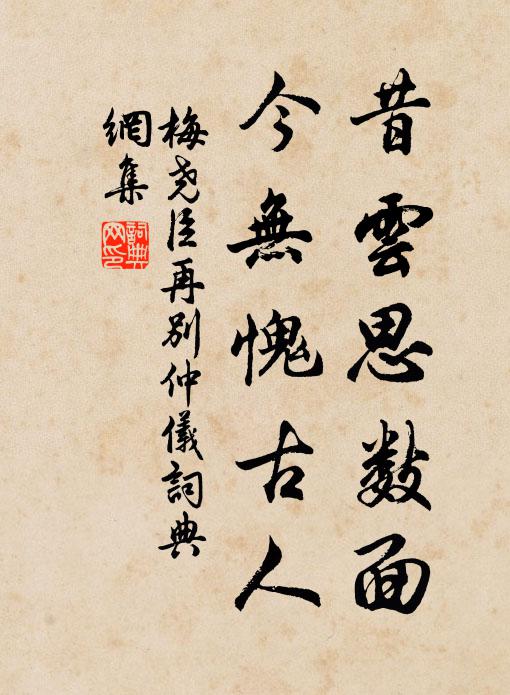 昔雲思数面
今無愧古人
梅尧臣再别仲儀詞典
網集
詞典
网印